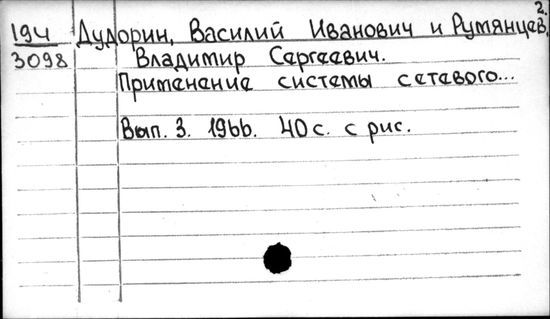 2.
194 Дудорин, Василий Иванович и Румянцев,
3098 Владимир Сергеевич.
Применение системы сетевого...
Вып. 3. 1966. 40 с. с рис.